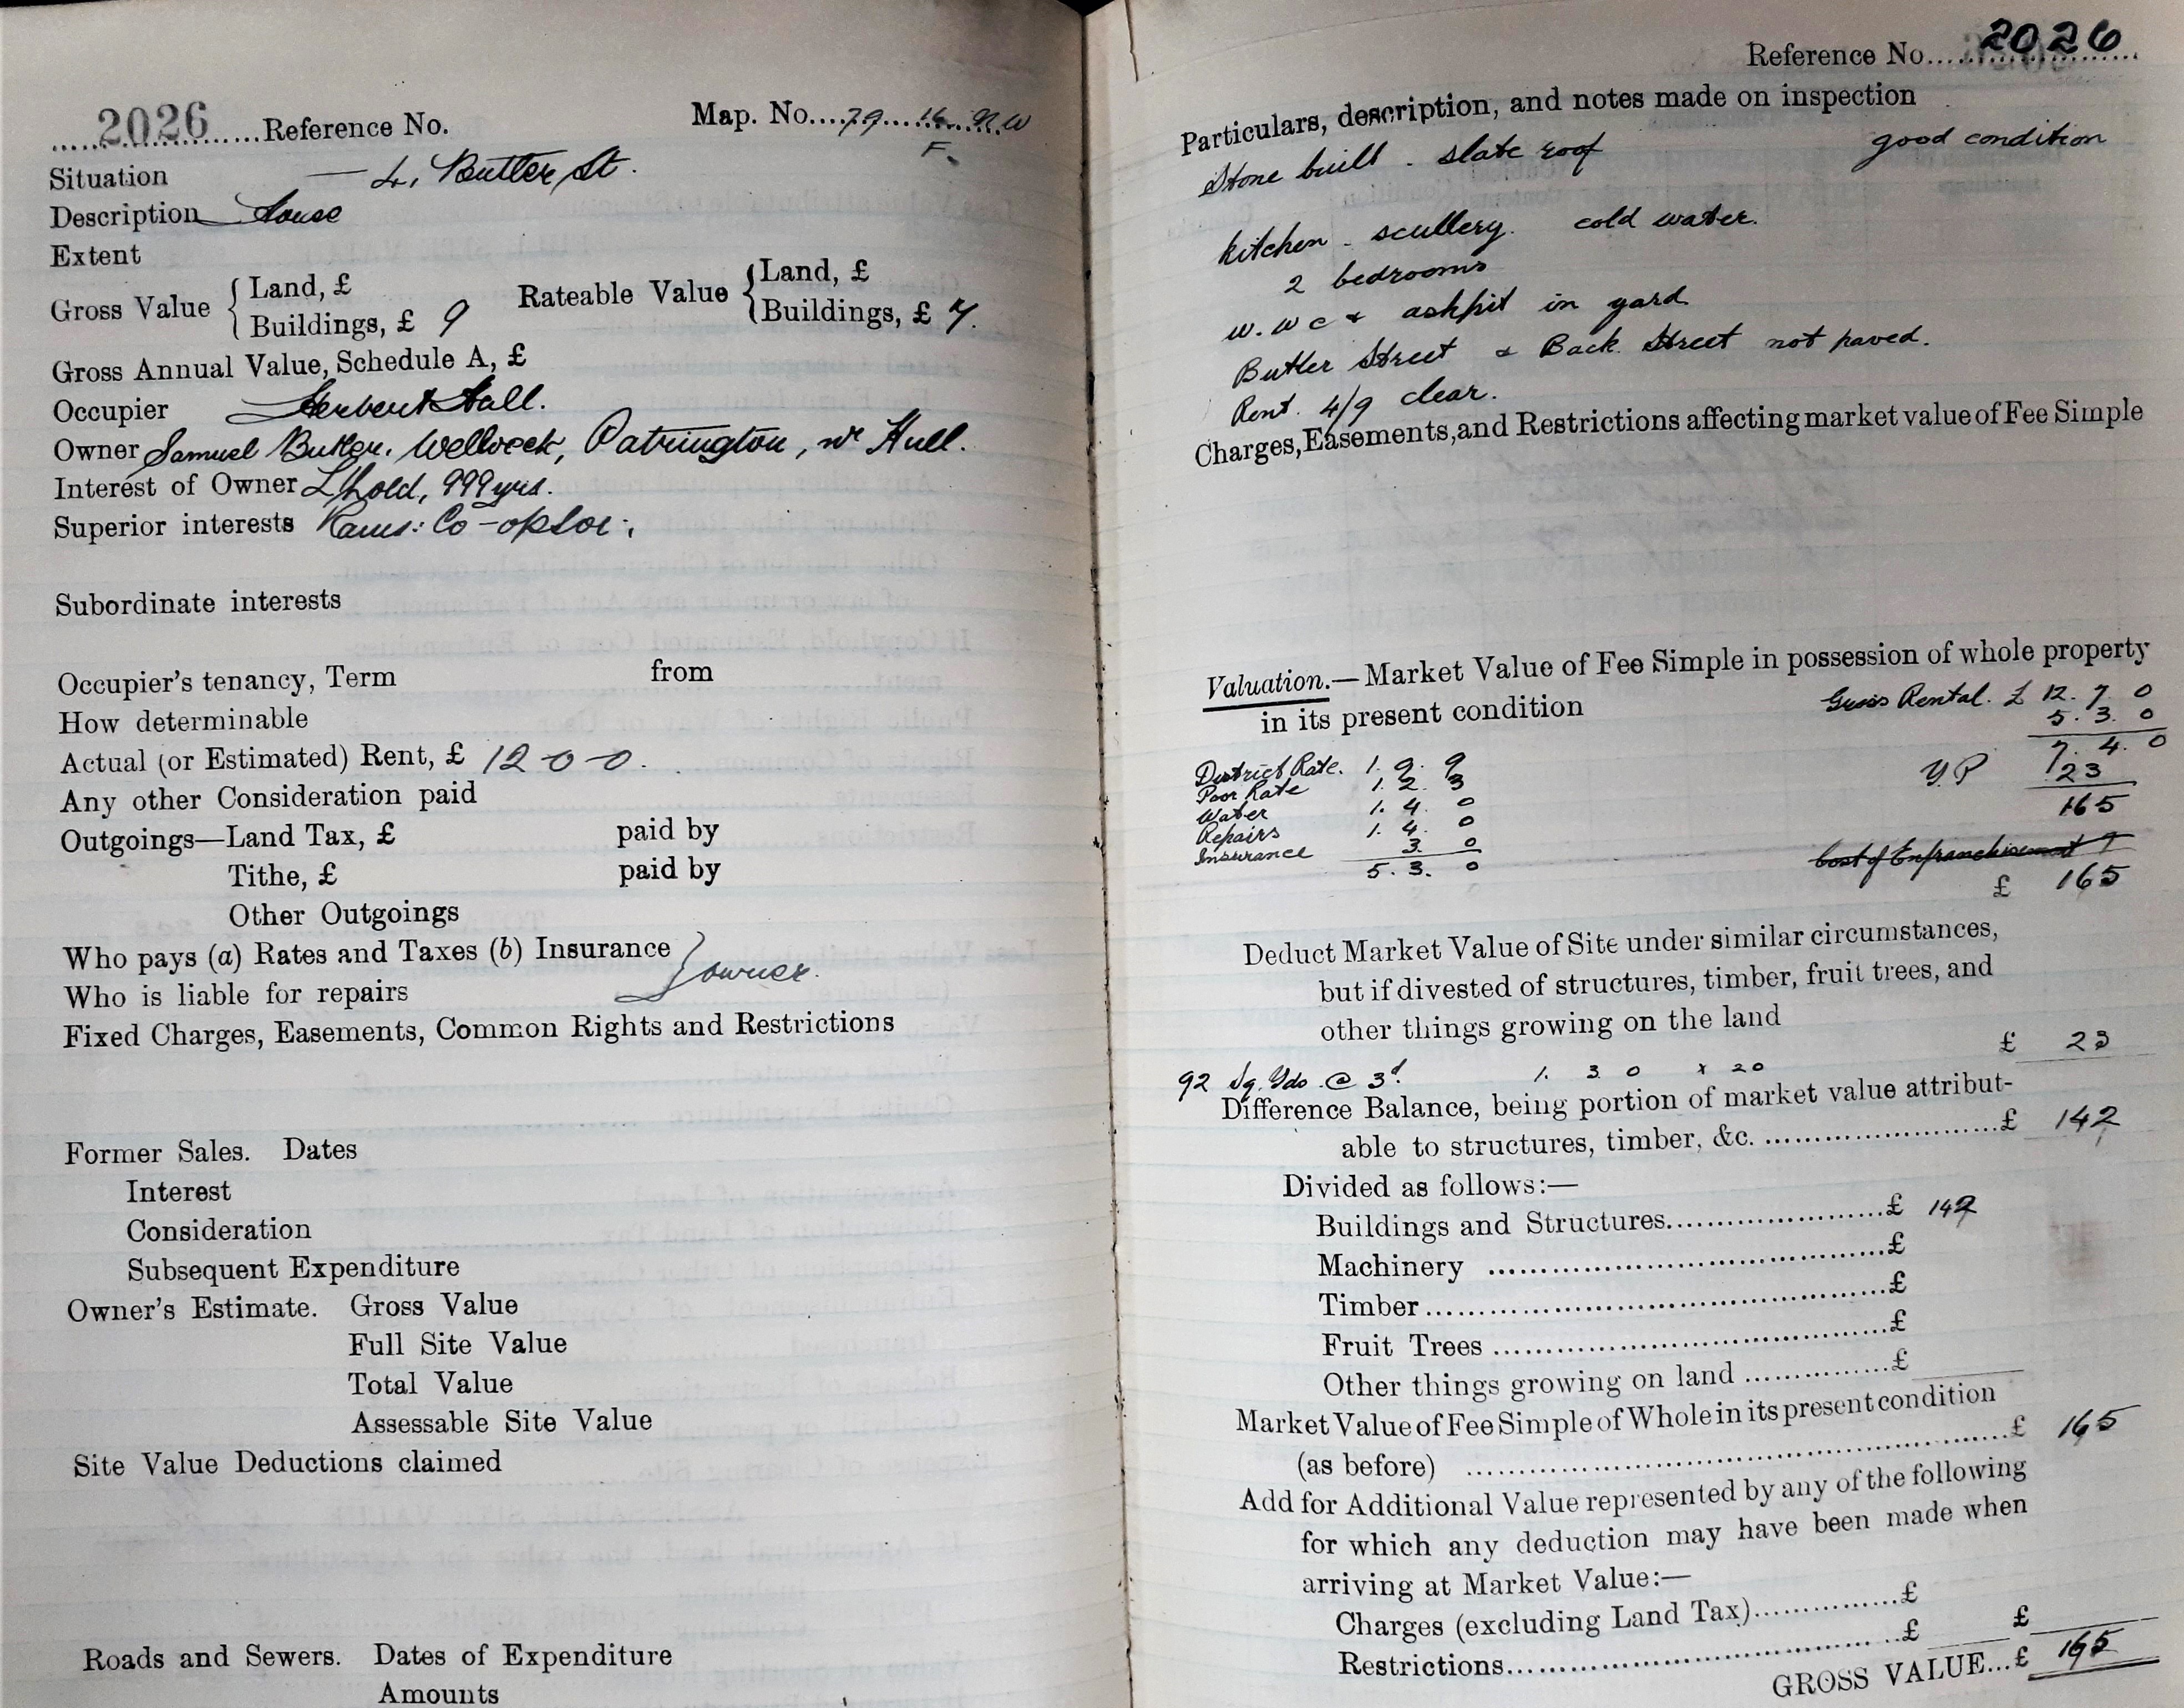 2026 Reference No.
Map. No. 79 16 N W
F.
Situation — 4, Butler St.
Description House
Extent
Gross Value { Land, £
Buildings, £ 9
Rateable Value { Land, £
Buildings, £ 7.
Gross Annual Value, Schedule A, £
Occupier Herbert Hall.
Owner Samuel Butler, Patrington, nr Hull.
Interest of Owner L'hold, 999 yrs.
Superior interests Rams: Co-op Soc:.
Subordinate interests
Occupier's tenancy, Term from
How determinable
Actual (or Estimated) Rent, £ 12-0-0.
Any other Consideration paid
Outgoings—Land Tax, £ paid by
Tithe, £ paid by
Other Outgoings
Who pays (a) Rates and Taxes (b) Insurance
} owner.
Who is liable for repairs
Fixed Charges, Easements, Common Rights and Restrictions
Former Sales. Dates
Interest
Consideration
Subsequent Expenditure
Owner's Estimate. Gross Value
Full Site Value
Total Value
Assessable Site Value
Site Value Deductions claimed
Roads and Sewers. Dates of Expenditure
Amounts
Reference No. 2026
Particulars, description, and notes made on inspection
Stone built - slate roof good condition
kitchen - scullery. cold water.
2 bedrooms
w.w c & ashpit in yard
Butler Street & Back Street not paved.
Rent. 4/9 clear.
Charges, Easements, and Restrictions affecting market value of Fee Simple
Valuation.—Market Value of Fee Simple in possession of whole property
in its present condition
Gross Rental. £ 12. 7. 0
5. 3. 0
7. 4. 0
Y.P 23
165
Cost of Enfranchisement 7
£ 165
District Rate. 1. 9. 9
Poor Rate 1. 2. 3
Water 1. 4. 0
Repairs 1. 4. 0
Insurance 3. 0
5. 3. 0
Deduct Market Value of Site under similar circumstances,
but if divested of structures, timber, fruit trees, and
other things growing on the land
£ 23
92 Sq. Yds @ 3d. 1. 3 0 x 20
Difference Balance, being portion of market value attribut-
able to structures, timber, &c. £ 142
Divided as follows:—
Buildings and Structures £ 142
Machinery £
Timber £
Fruit Trees £
Other things growing on land £
Market Value of Fee Simple of Whole in its present condition
(as before) £ 165
Add for Additional Value represented by any of the following
for which any deduction may have been made when
arriving at Market Value:—
Charges (excluding Land Tax) £
Restrictions £ £
GROSS VALUE...£ 165